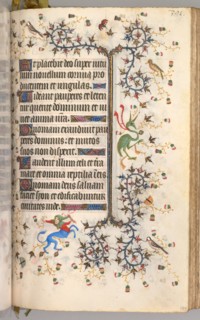 Et placebit deo super vitu
lum novellum cornua pro
ducentem et ungulas.
Videant pauperes et leten
tur querite dominum et vi
vet anima vra
Quoniam exaudivit pau
peres dominus: et vinctos
suos non despexit.
Laudent illum celi et tra
mare et omnia reptilia in eis
Quoniam deus salvam
faciet syon et edificabuntur
civitates iude